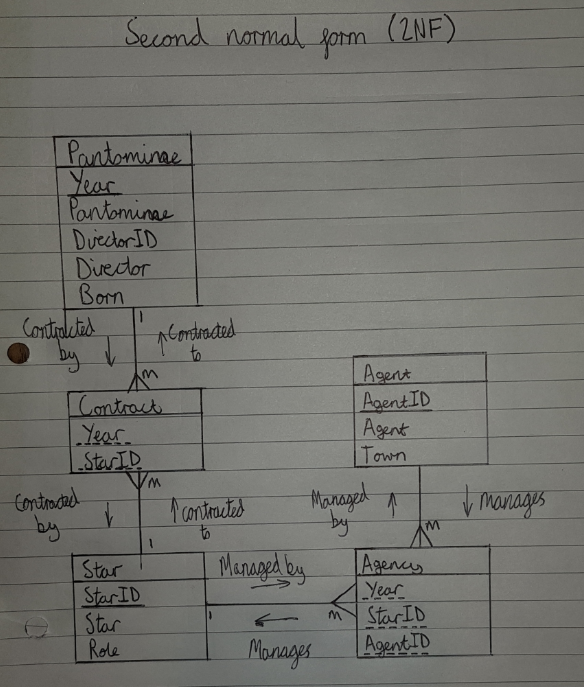 Second normal form (2NF)
Pantomime
Year
Pantomime
DirectorID
Director
Born
1
Contracted
by
Contracted
to
M
Contract
Year
StarID
M
Contracted
by
contracted
to
1
Star
StarID
Star
Role
Agent
AgentID
Agent
Town
Managed
by
manages
M
Managed by
1
M
Manages
Agency
Year
StarID
AgentID